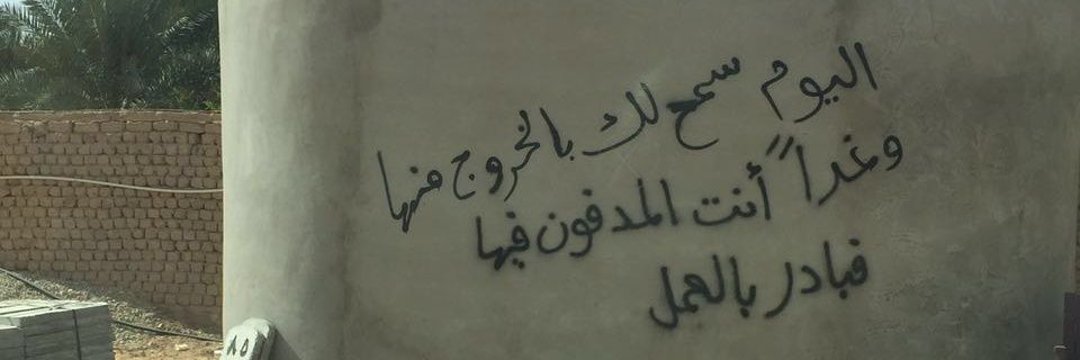 اليوم سمح لك بالخروج منها
وغداً أنت المدفون فيها
فبادر بالعمل
٨٥